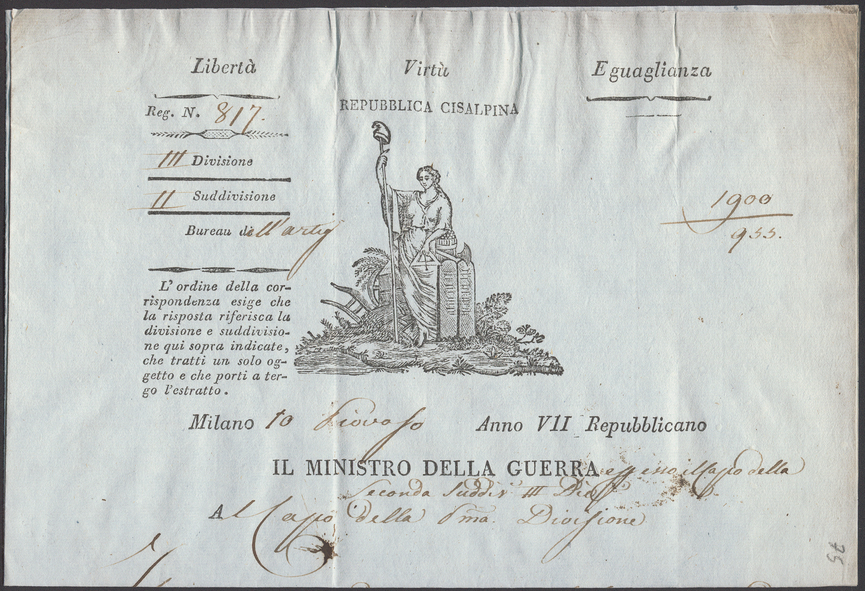 Libertà Virtù Eguaglianza
Reg. N. 817.
REPUBBLICA CISALPINA
III Divisione
II Suddivisione
Bureau dell'artig
1900
955.
L'ordine della cor-
rispondenza esige che
la risposta riferisca la
divisione e suddivisio-
ne qui sopra indicate,
che tratti un solo og-
getto e che porti a ter-
go l'estratto.
Milano 10 Piovoso Anno VII Repubblicano
IL MINISTRO DELLA GUERRA e per esso il Capo della
Seconda Suddiv. III Div.
Al Capo della Pma. Divisione
75